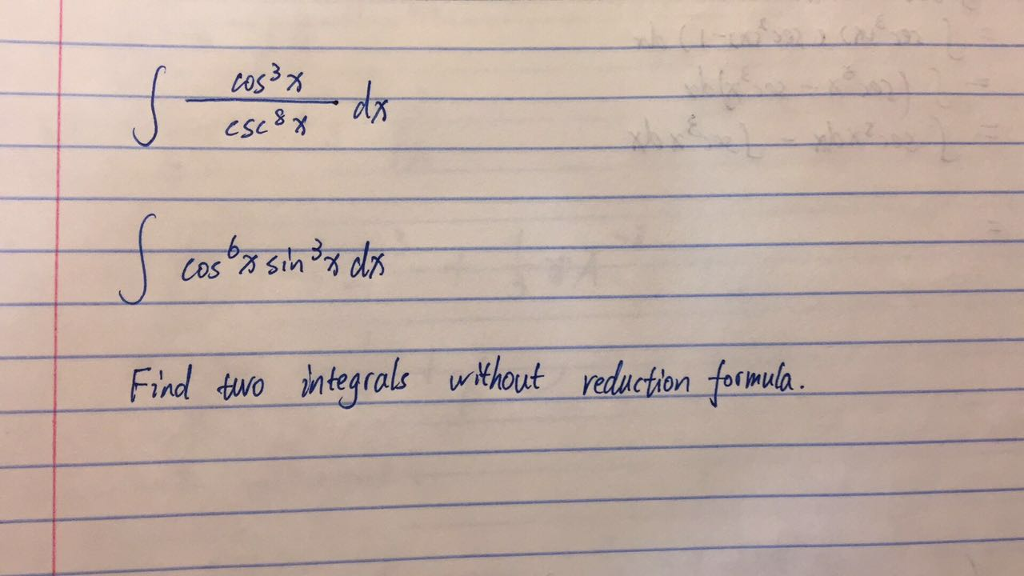 ∫ cos³x / csc⁸x dx
∫ cos⁶x sin³x dx
Find two integrals without reduction formula.